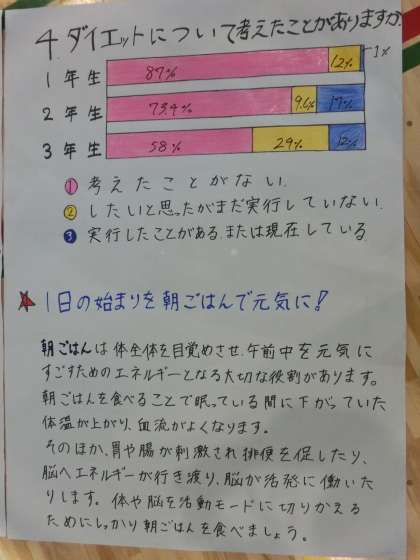 4.ダイエットについて考えたことがありますか.
1年生 87% 12% 1%
2年生 73.4% 9.6% 17%
3年生 58% 29% 12%
① 考えたことがない.
② したいと思ったがまだ実行していない.
③ 実行したことがある.または現在している.
1日の始まりを朝ごはんで元気に!
朝ごはんは体全体を目覚めさせ、午前中を元気に
すごすためのエネルギーとなる大切な役割があります。
朝ごはんを食べることで眠っている間に下がっていた
体温が上がり、血流がよくなります。
そのほか、胃や腸が刺激され排便を促したり、
脳へエネルギーが行き渡り、脳が活発に働いた
りします。体や脳を活動モードに切りかえる
ためにしっかり朝ごはんを食べましょう。